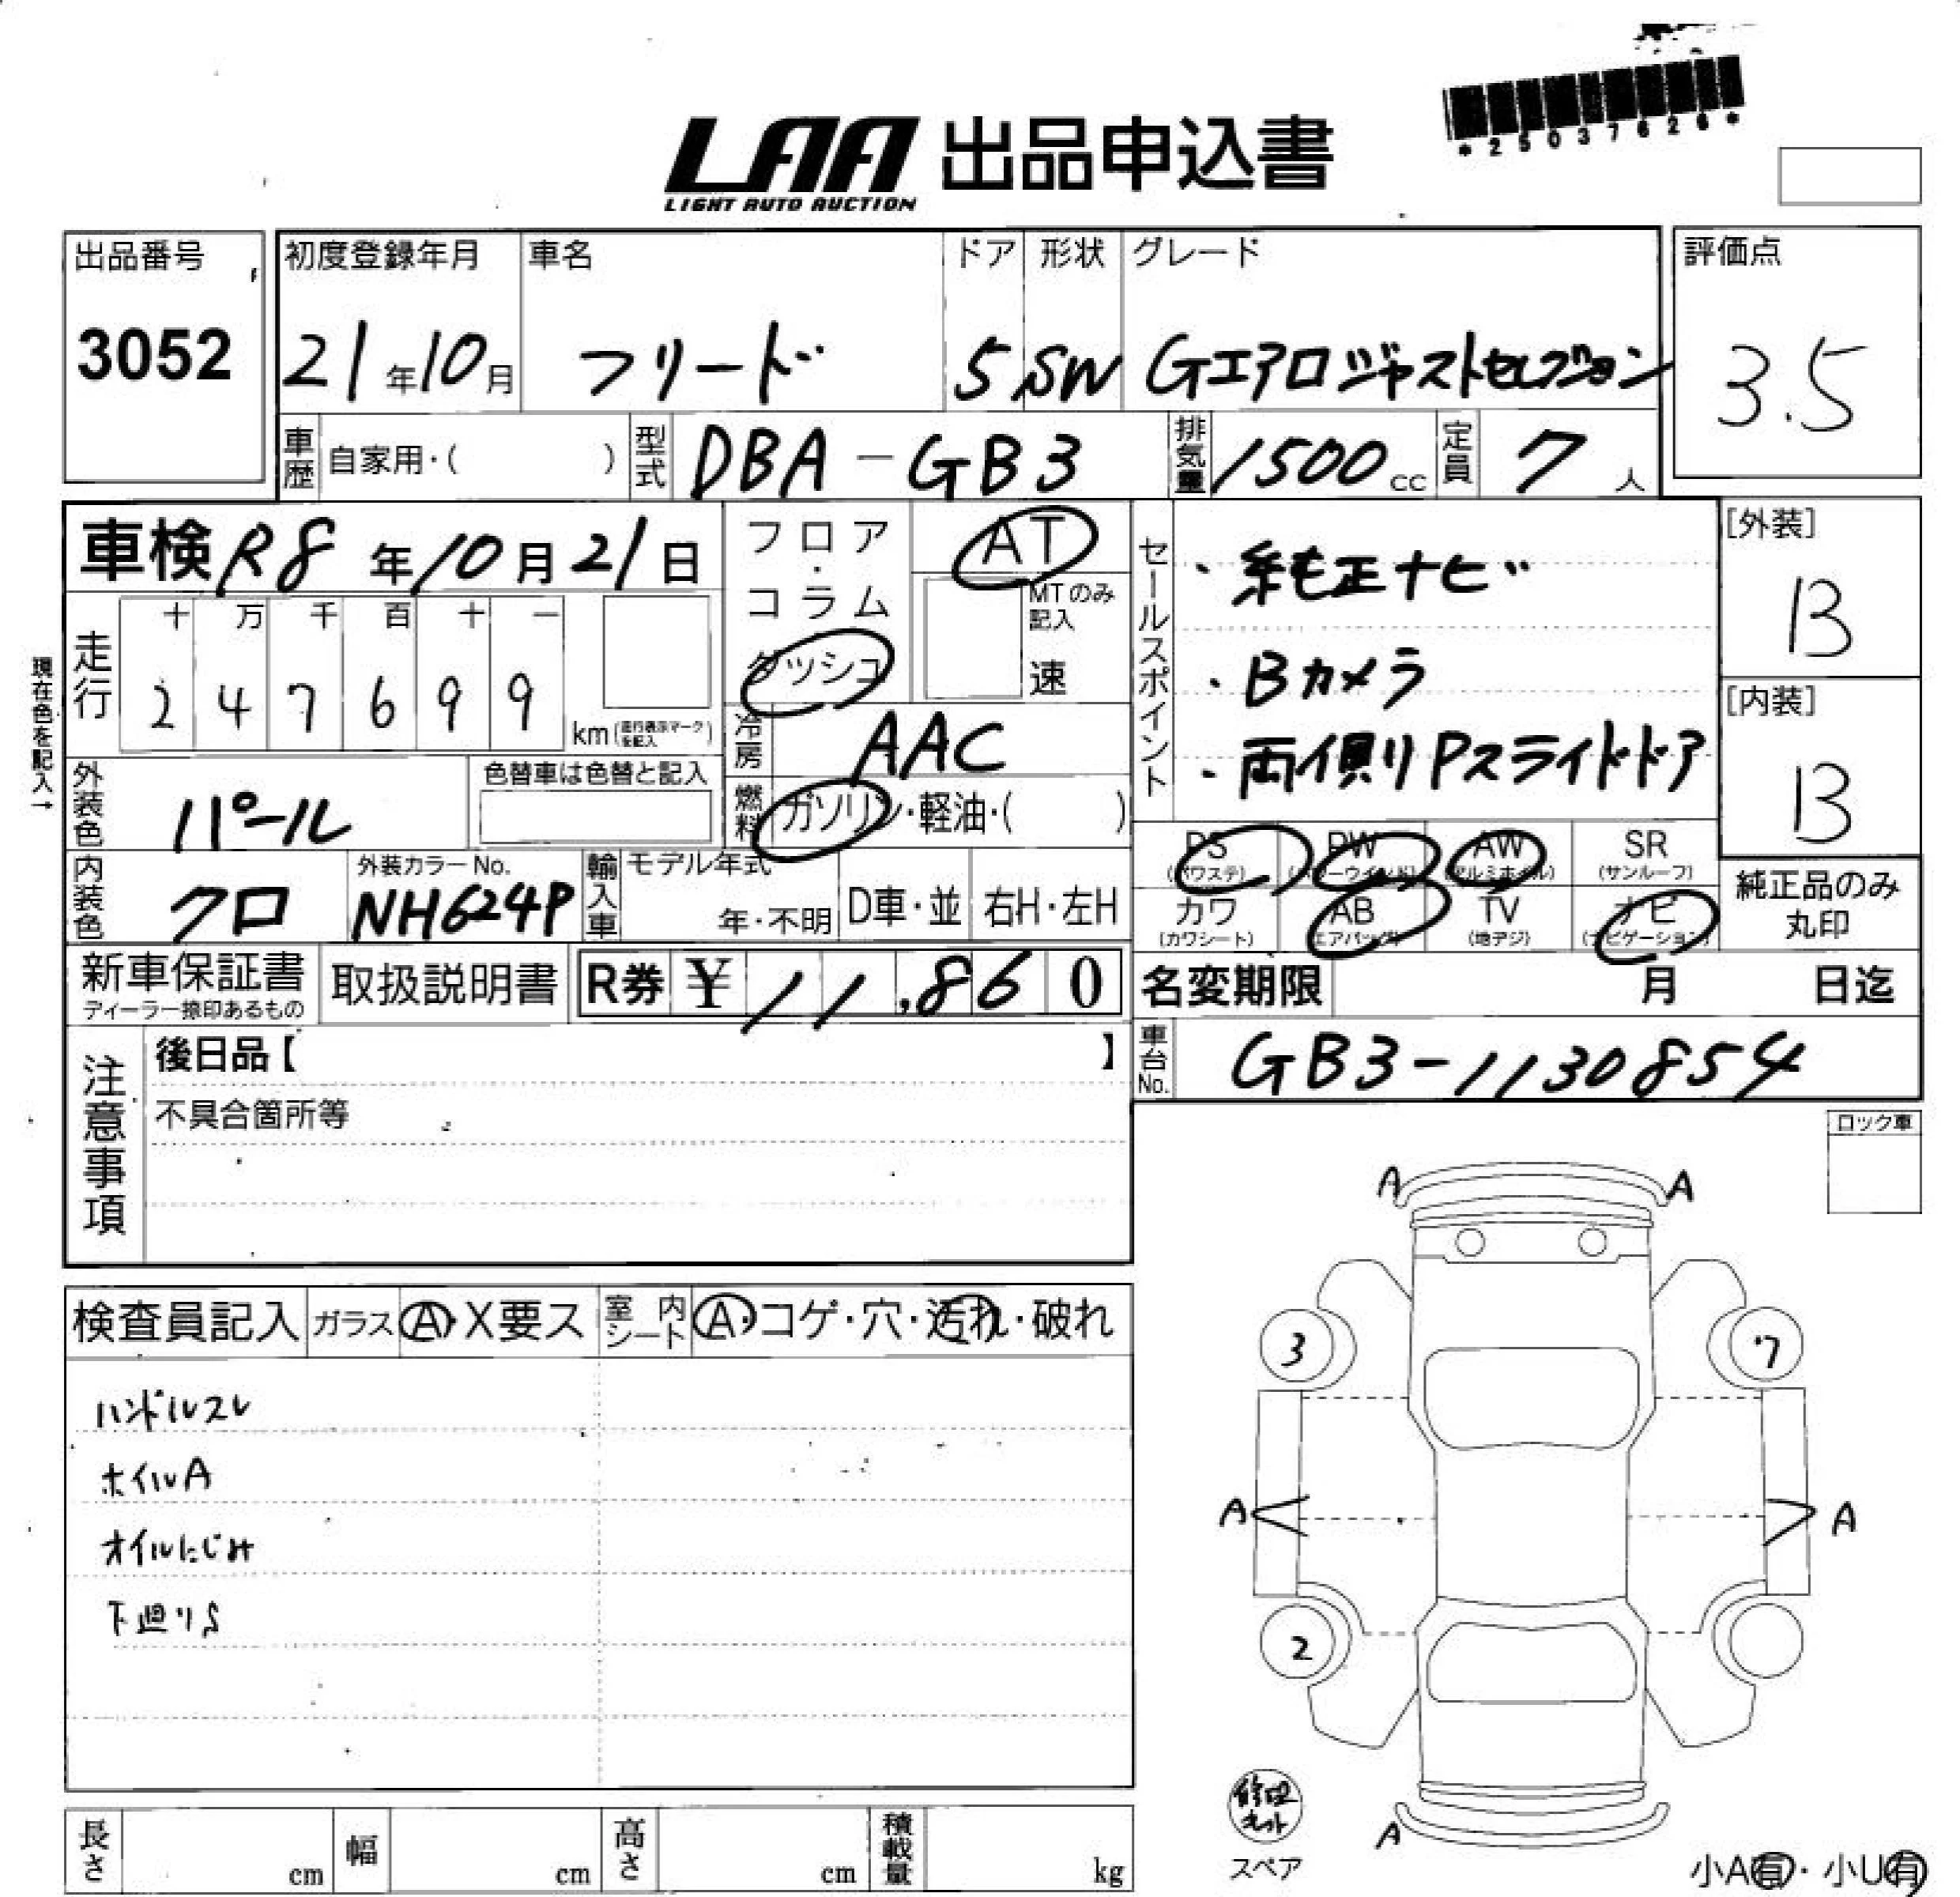 *25037626*
LAA 出品申込書
LIGHT AUTO AUCTION
出品番号
3052
初度登録年月
21年10月
車名
フリード
ドア
5
形状
SW
グレード
Gエアロジャストセレクション
評価点
3.5
車歴 自家用・( )
型式 DBA-GB3
排気量 1500cc
定員 7人
車検 R8年10月21日
フロア・コラム
ダッシュ
AT
MTのみ記入
速
セールスポイント
・純正ナビ
・Bカメラ
・両側りPスライドドア
[外装]
B
[内装]
B
現在色を記入→
走行
十 万 千 百 十 一
2 4 7 6 9 9
km(走行表示マークを記入)
冷房 AAC
外装色 パール
色替車は色替と記入
燃料 ガソリン・軽油・( )
PS (パワステ)
PW (パワーウインド)
AW (アルミホイル)
SR (サンルーフ)
カワ (カワシート)
AB (エアバッグ)
TV (地デジ)
ナビ (ナビゲーション)
純正品のみ丸印
内装色 クロ
外装カラーNo.
NH624P
輸入車
モデル年式
年・不明
D車・並
右H・左H
新車保証書
ディーラー捺印あるもの
取扱説明書
R券 ¥ 11,860
名変期限 月 日迄
注意事項
後日品【 】
不具合箇所等
車台No. GB3-1130854
ロック車
検査員記入
ガラス A・X要ス
室内シート A・コゲ・穴・汚れ・破れ
ハンドルスレ
ホイルA
オイルにじみ
下廻りS
A A
3 7
A A
2
A
修理キット
スペア
長さ cm
幅 cm
高さ cm
積載量 kg
小A有・小U有